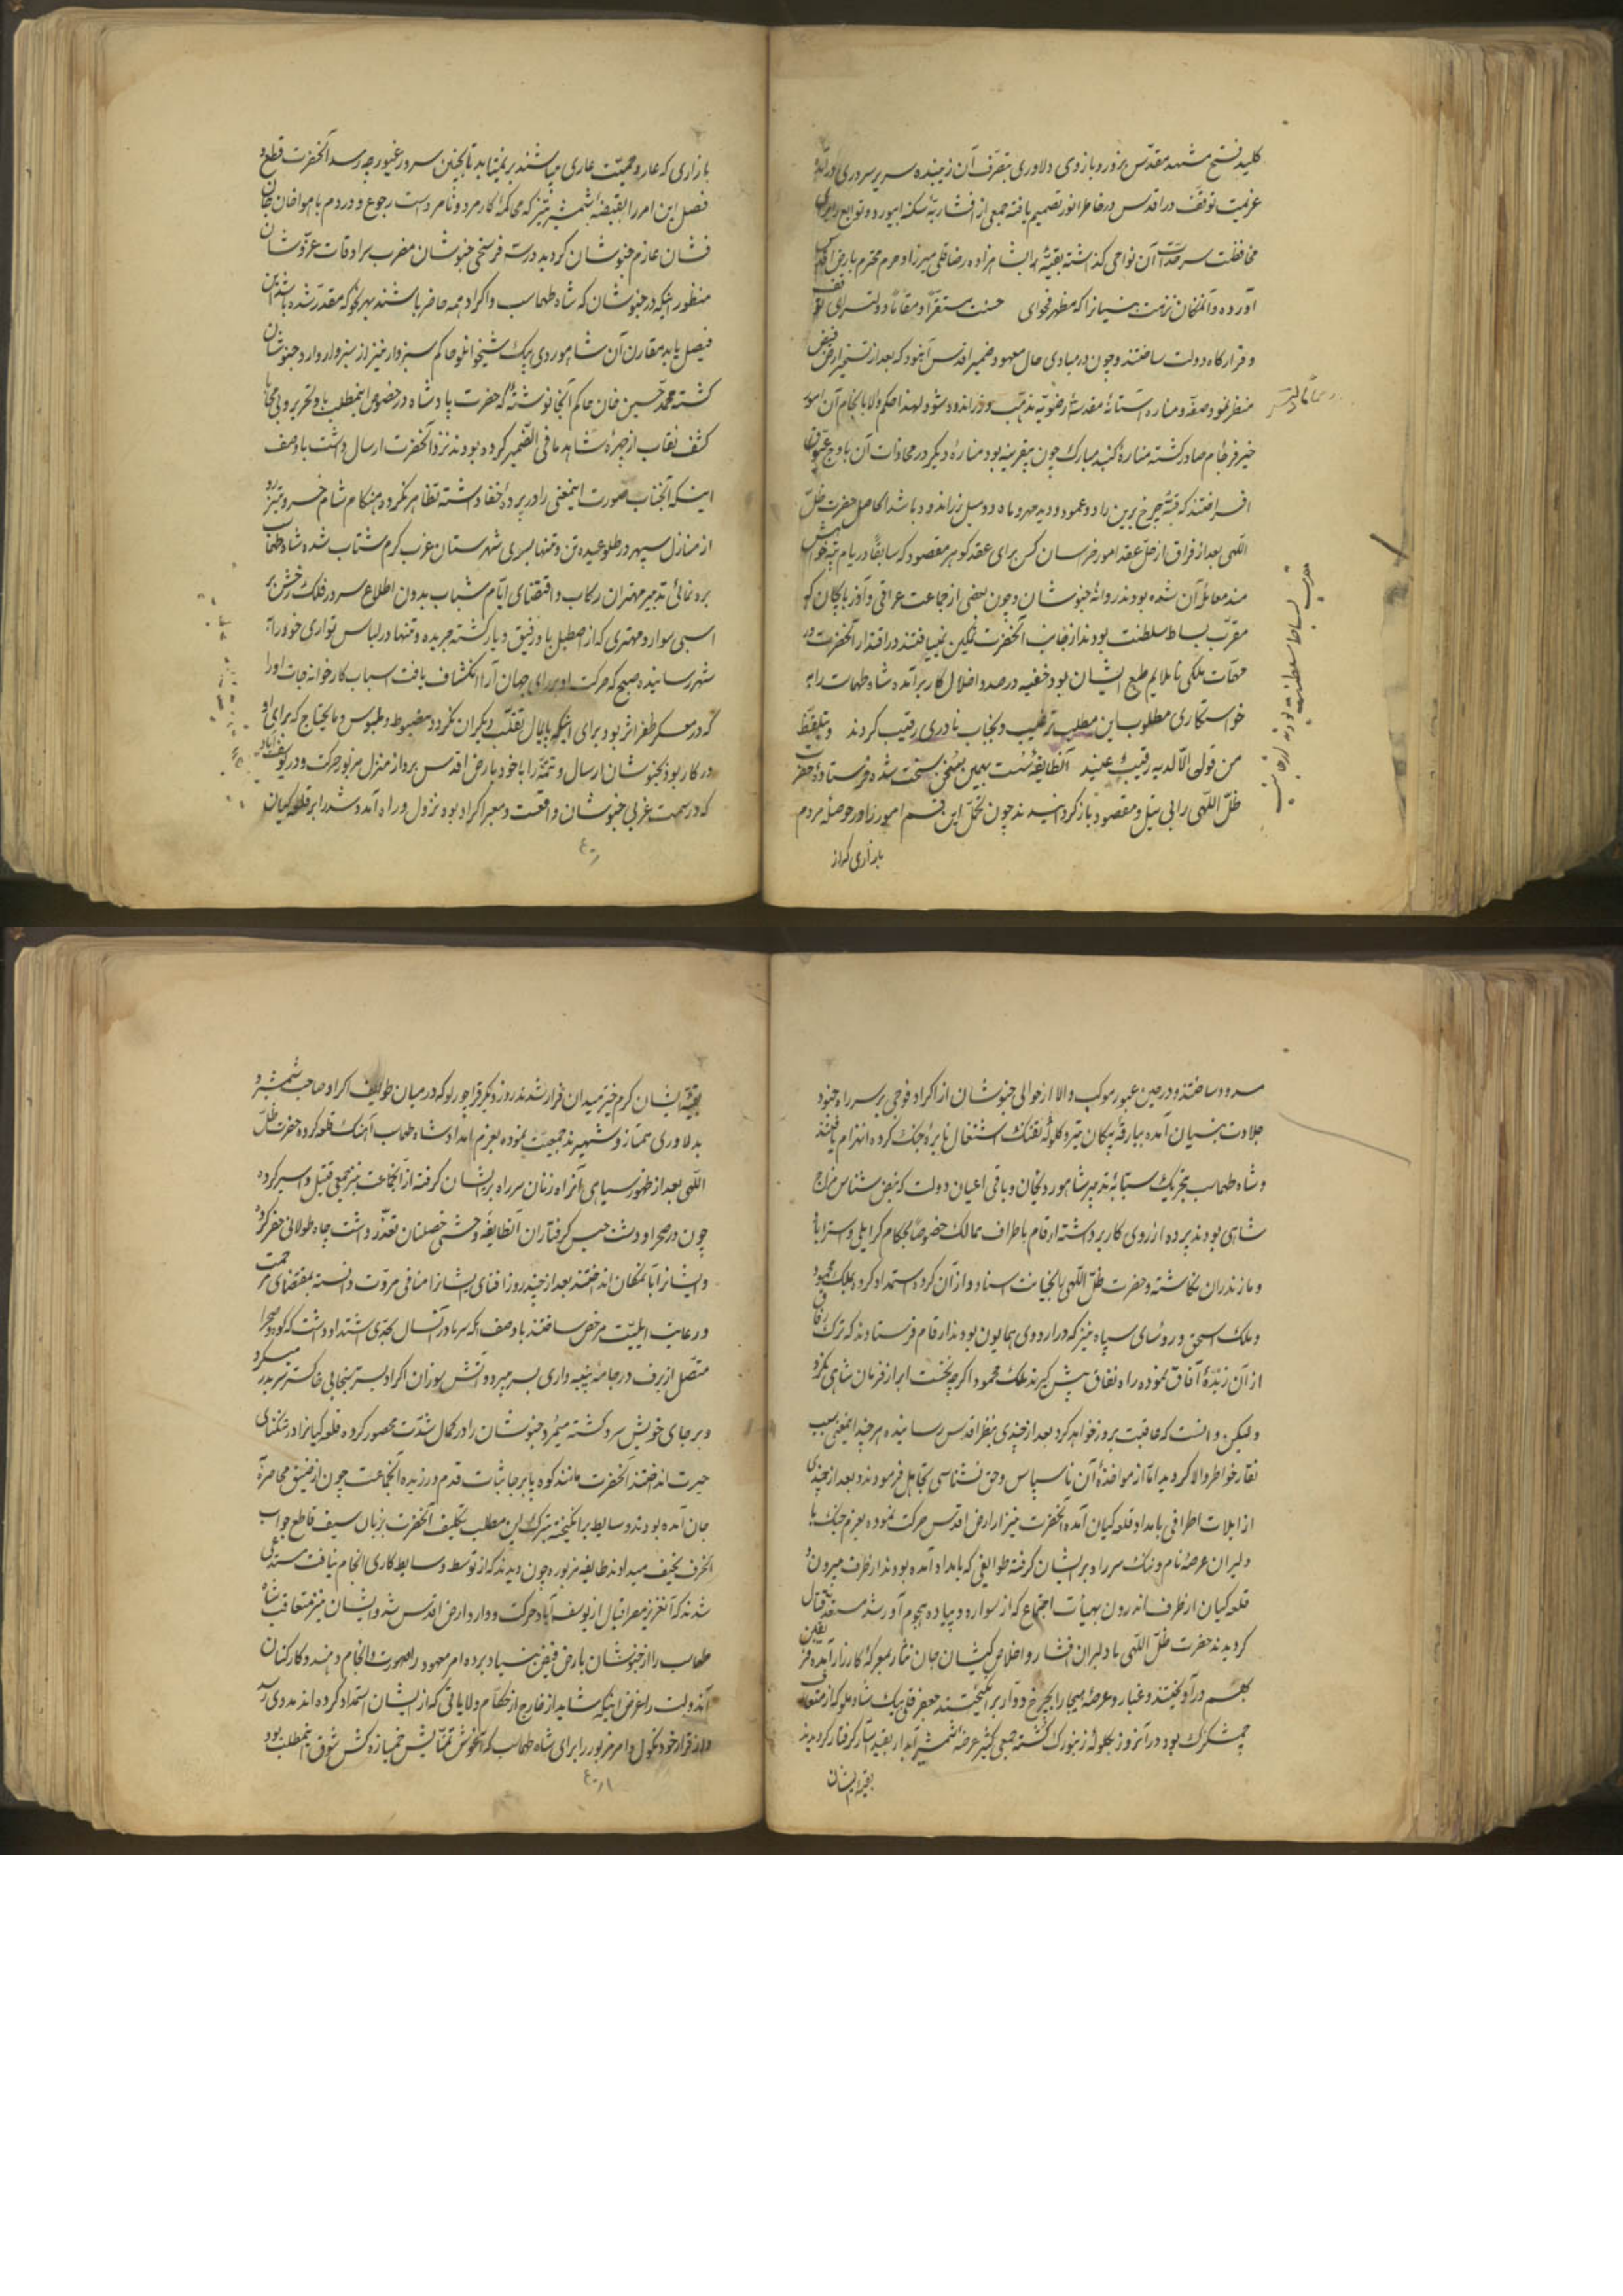 کلید فتح مشهد مقدس بزور و بازوی دلاوری بتصرف آن زیبنده سریر سروری در آمد
عزیمت توقف در اقدس در خاطر انور تصمیم یافته جمعی از افشاریه سکنه ابیورد و توابع را برای
محافظت سرحدات آن نواحی گذاشته بقیه را با شاهزاده رضاقلی میرزا و حرم محترم بارض اقدس
آورده و آنمکان نزهت بنیانرا که مظهر فحوای حسنت مستقرا و مقاما دولتسرای
و قرارگاه دولت ساختند و چون در مبادی حال معهود ضمیر اقدس آن بود که بعد از تسخیر ارض فیض
منظر نمود صفه و مناره آستانه مقدسه رضویه تذهیب و زراندود شود لهذا حکم والا بانجام آن امور
خیر فرجام صادر گشته مناره گنبد مبارک چون بیقرینه بود مناره دیگر در محاذات آن باوج عیوق
افراختند که قبه چرخ برین را دو عمود و دیده مهر و ماه را دو میل زراندود باشد الحاصل حضرت ظل
اللهی بعد از فراغ از حل عقد امور خراسان کس برای عقد گوهر مقصود که سابقا در ایام
معامله آن شده بودند روانه خبوشان و چون بعضی از جماعت عراقی و آذربایجان که
مقرب بساط سلطنت بودند از جانب آنحضرت تمکین نمییافتند و اقتدار آنحضرت در
مهمات ملکی ناملایم طبع ایشان بود خفیه در صدد اخلال کار برآمده شاه طهماسب را به
خواستگاری مطلوب این مطلب ترغیب و بجناب نادری رقیب کردند و یتلفظ
من قول الا لدیه رقیب عتید آنطایفه سست بهمین سخن سخت شده فرستاده حضرت
ظل اللهی را بی نیل مقصود باز گردانیدند چون تحمل این قسم امور را در حوصله مردم
بازاری که از
مقرب بساط سلطنت بودند از جانب
بازاری که عار و حمیت عاری میباشند بر نمیتابد تا بچنین سرور غیور چه رسد آنحضرت قطع و
فصل این امر را بقبضه شمشیر تیز که محاکمه کار مرد و نامرد است رجوع و در دم با هواخان جان
فشان عازم خبوشان گردید در سه فرسخی خبوشان مضرب سرادقات عز و شان
منظور اینکه در خبوشان که شاه طهماسب و اکراد همه حاضر باشند بهر نحو که مقدر شده باشد این
فیصل یابد مقارن آن شاهوردی بیک شیخوانلو حاکم سبزوار نیز از سبزوار وارد خبوشان
گشته محمد حسین خان حاکم آنجا نوشته که حضرت پادشاه در خصوص اینمطلب باو تحریر و بی محابا
کشف نقاب از چهره شاهد ما فی الضمیر کرده بودند نزد آنحضرت ارسال داشت با وصف
اینکه آنجناب صورت اینمعنی را در پرده خفا داشته تظاهر نکرده هنگام شام خسرو تیزرو
از منازل سپهر در طلوعیده تن و تنها بسوی شهرستان غرب گرم شتاب شده شاه طهماسب
برهنمائی تدبیر مهتران رکاب و اقتضای ایام شباب بدون اطلاع سرور فلک رخش بر
اسبی سوار و مهتری که از اصطبل با او رفیق و یار گشته جریده و تنها در لباس تواری خود را به
شهر رسانیده صبح که حرکت او بر رای جهان آرا انکشاف یافت اسباب کارخانه جات او را
که در معسکر ظفر اثر بود برای اینکه پامال تقلب دیگران نگردد مضبوط و ملبوس و مایحتاج که برای او
در کار بود بخبوشان ارسال و تتمه را با خود بارض اقدس برده از منزل مزبور حرکت و در یوسف آباد
که در سمت غربی خبوشان واقعست و معبر اکراد بود نزول و راه آمد و شد را بر قلعه کیان
مسدود ساختند و در حین عبور موکب والا از حوالی خبوشان از اکراد فوجی بر سر راه جنود
جلادت بنیان آمده ببارقه پیکان تیر و گلوله تفنگ اشتعال نایره جنگ کرده انهزام یافتند
و شاه طهماسب بتحریک سبابه تدبیر شاهوردیخان و باقی اعیان دولت که نبض شناس مزاج
شاهی بودند پرده از روی کار برداشته ارقام باطراف ممالک خصوصا بحکام گرایلی و استراباد
و مازندران نگاشته و حضرت ظل اللهی را بخیانت اسناد و از آن گروه استمداد کرده بملک محمود
و ملک اسحق و روسای سپاه نیز که در اردوی همایون بودند ارقام فرستادند که ترک رفاقت
از آن زبده آفاق نموده راه نفاق پیش گیرند ملک محمود اگرچه نخست ابراز فرمان شاهی نکرد
و لیکن دانست که عاقبت بروز خواهد کرد بعد از چندی بنظر اقدس رسانیده هر چند اینمعنی سبب
نقار خاطر والا گردید اما از مواخذه آن ناسپاس و حق نشناسی تجاهل فرمودند و بعد از چندی
از ایلات اطرافی بامداد قلعه کیان آمده آنحضرت نیز از ارض اقدس حرکت نموده بعزم جنگ با
دلیران عرصه نام و ننگ سر راه بر ایشان گرفته طوایفی که بامداد آمده بودند از طرف بیرون و
قلعه کیان از طرف اندرون بهیات اجتماع که از سواره و پیاده هجوم آور شده مستعد قتال
گردیدند حضرت ظل اللهی با دلیران افشار و اخلاص کیشان جان نثار بمعرکه کارزار آمده
بهم در آویختند و غبار عرصه هیجا را بچرخ دوار برانگیختند جعفر قلی بیک شادملو که از متعلقان
چمشگزک بود در آنروز بگلوله زنبورک کشته جمعی کثیر عرضه شمشیر آبدار بقید اسار گرفتار گردیدند
بقیه ایشان
بقیه ایشان گرم خیز میدان فرار شدند روز دیگر قراچورلو که در میان طوایف اکراد صاحب شمشیر و
بدلاوری ممتاز و شهیرند جمعیت نموده بعزم امداد شاه طهماسب آهنگ قلعه کرده حضرت ظل
اللهی بعد از ظهور سیاهی آنراه زنان سر راه بر ایشان گرفته از آنجماعت نیز جمعی قتیل و اسیر کرده
چون در صحرا و دشت حبس گرفتاران آنطایفه وحشی خصلتان تعذر داشت چاه طولانی حفر کرده
و ایشانرا بآنمکان انداختند بعد از چند روز افنای ایشانرا منافی مروت دانسته بمقتضای مرحمت
و رعایت ایلیت مرخص ساختند با وصف آنکه سرما در آنسال بحدی اشتداد داشت که کوه و صحرا
متصل از برف در جامه پنبه داری بسر میبرد و آتش سوزان اکراد بستر سنجابی خاکستر سر بدر میکرد
و بر جای خویش سرد گشته میمرد خبوشان را در کمال شدت محصور کرده قلعه کیانرا در تنگنای
حیرت انداختند آنحضرت مانند کوه پابرجا ثبات قدم ورزیده آنجماعت چون از ضیق محاصره
بجان آمده بودند وسایط برانگیخته بترک این مطلب تکلیف آنحضرت بزبان سیف قاطع جواب
آنحرف سخیف میدادند طایفه مزبوره چون دیدند که از توسط وسایط کاری انجام نیافت مستدعی
شدند که آنعزیز مصر اقبال از یوسف آباد حرکت و وارد ارض اقدس شود ایشان نیز متعاقب شاه
طهماسب را از خبوشان بارض فیض بنیاد برده امر معهود را صورت انجام دهند و کارکنان
آندولت را غرض اینکه شاید از خارج از حکام ولایاتی که از ایشان استمداد کرده اند مددی رسد
و از قرار خود نکول و امر مزبور را برای شاه طهماسب که آغوش تمنایش خمیازه کش شوق اینمطلب بود